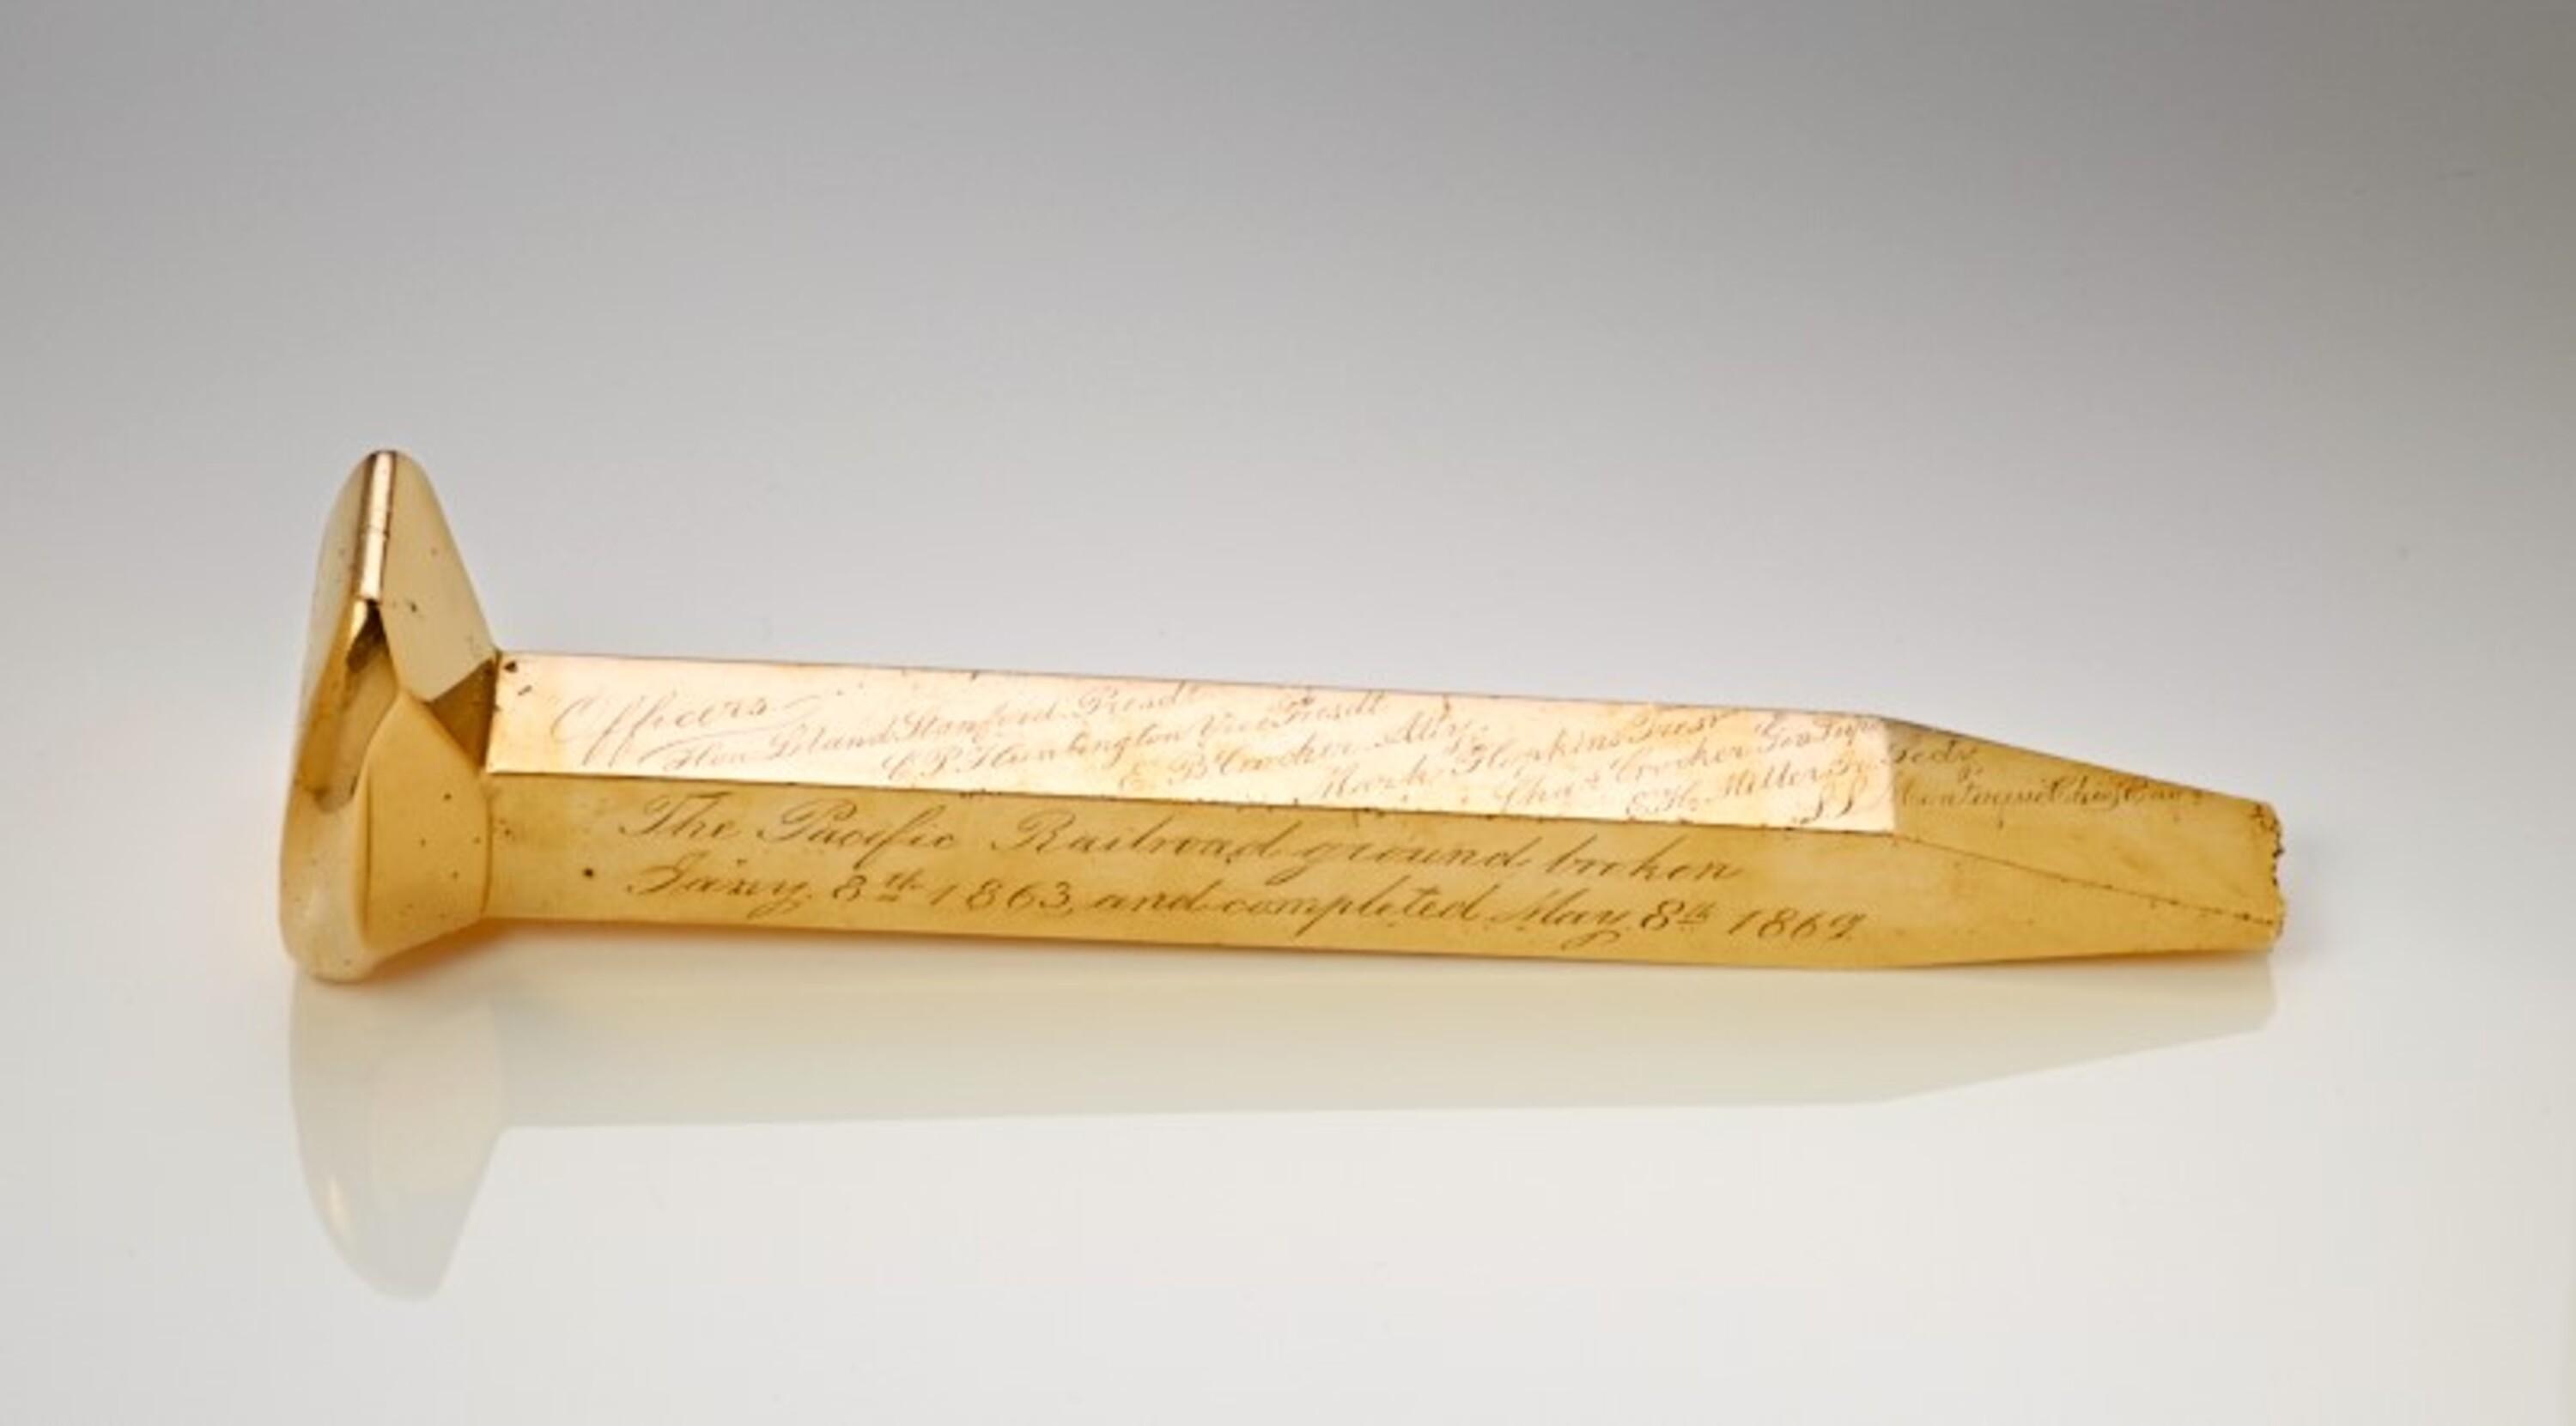 Officers
Hon. Leland Stanford Presdt
C P Huntington Vice Presdt
E B Crocker Atty
Mark Hopkins Treasr
Chas Crocker Gen Supt
E H Miller Jr Secty
S S Montague Chief Eng
The Pacific Railroad ground broken
Jany. 8th 1863, and completed May 8th 1869